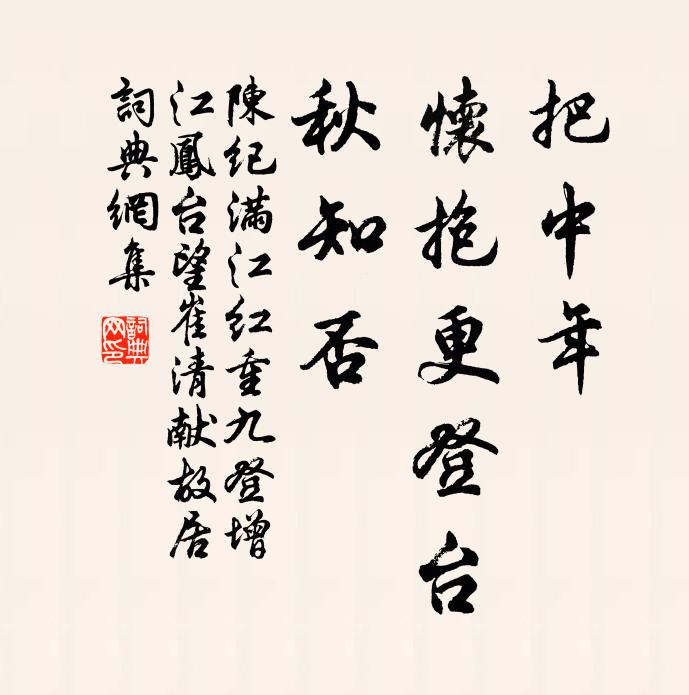 把中年
懷抱更登台
秋知否
陳紀滿江紅重九登增
江鳳台望崔清献故居
詞典網集
詞典网印